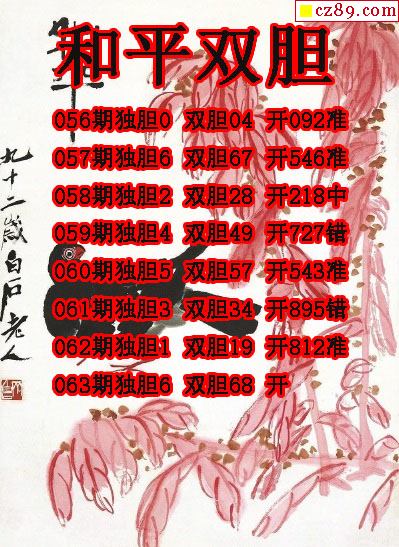 cz89.com
和平双胆
056期独胆0 双胆04 开092准
057期独胆6 双胆67 开546准
058期独胆2 双胆28 开218中
059期独胆4 双胆49 开727错
060期独胆5 双胆57 开543准
061期独胆3 双胆34 开895错
062期独胆1 双胆19 开812准
063期独胆6 双胆68 开
九十二岁白石老人